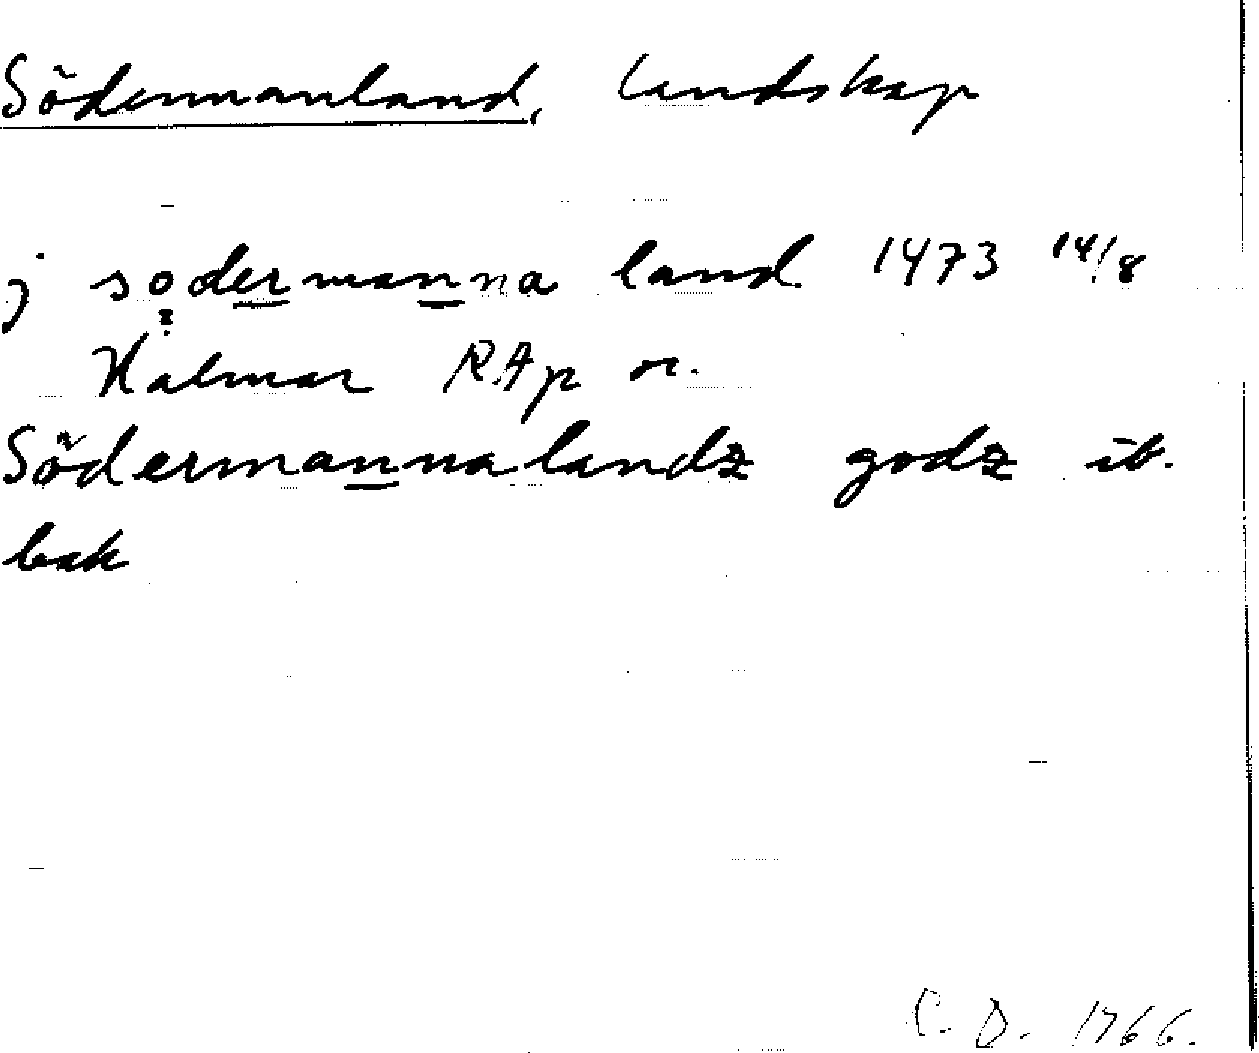 Södermanland, landskap
j sodermanna land 1473 14/8
Kalmar RAp or.
Södermannalandz godz ib.
bak
C. D. 1766.